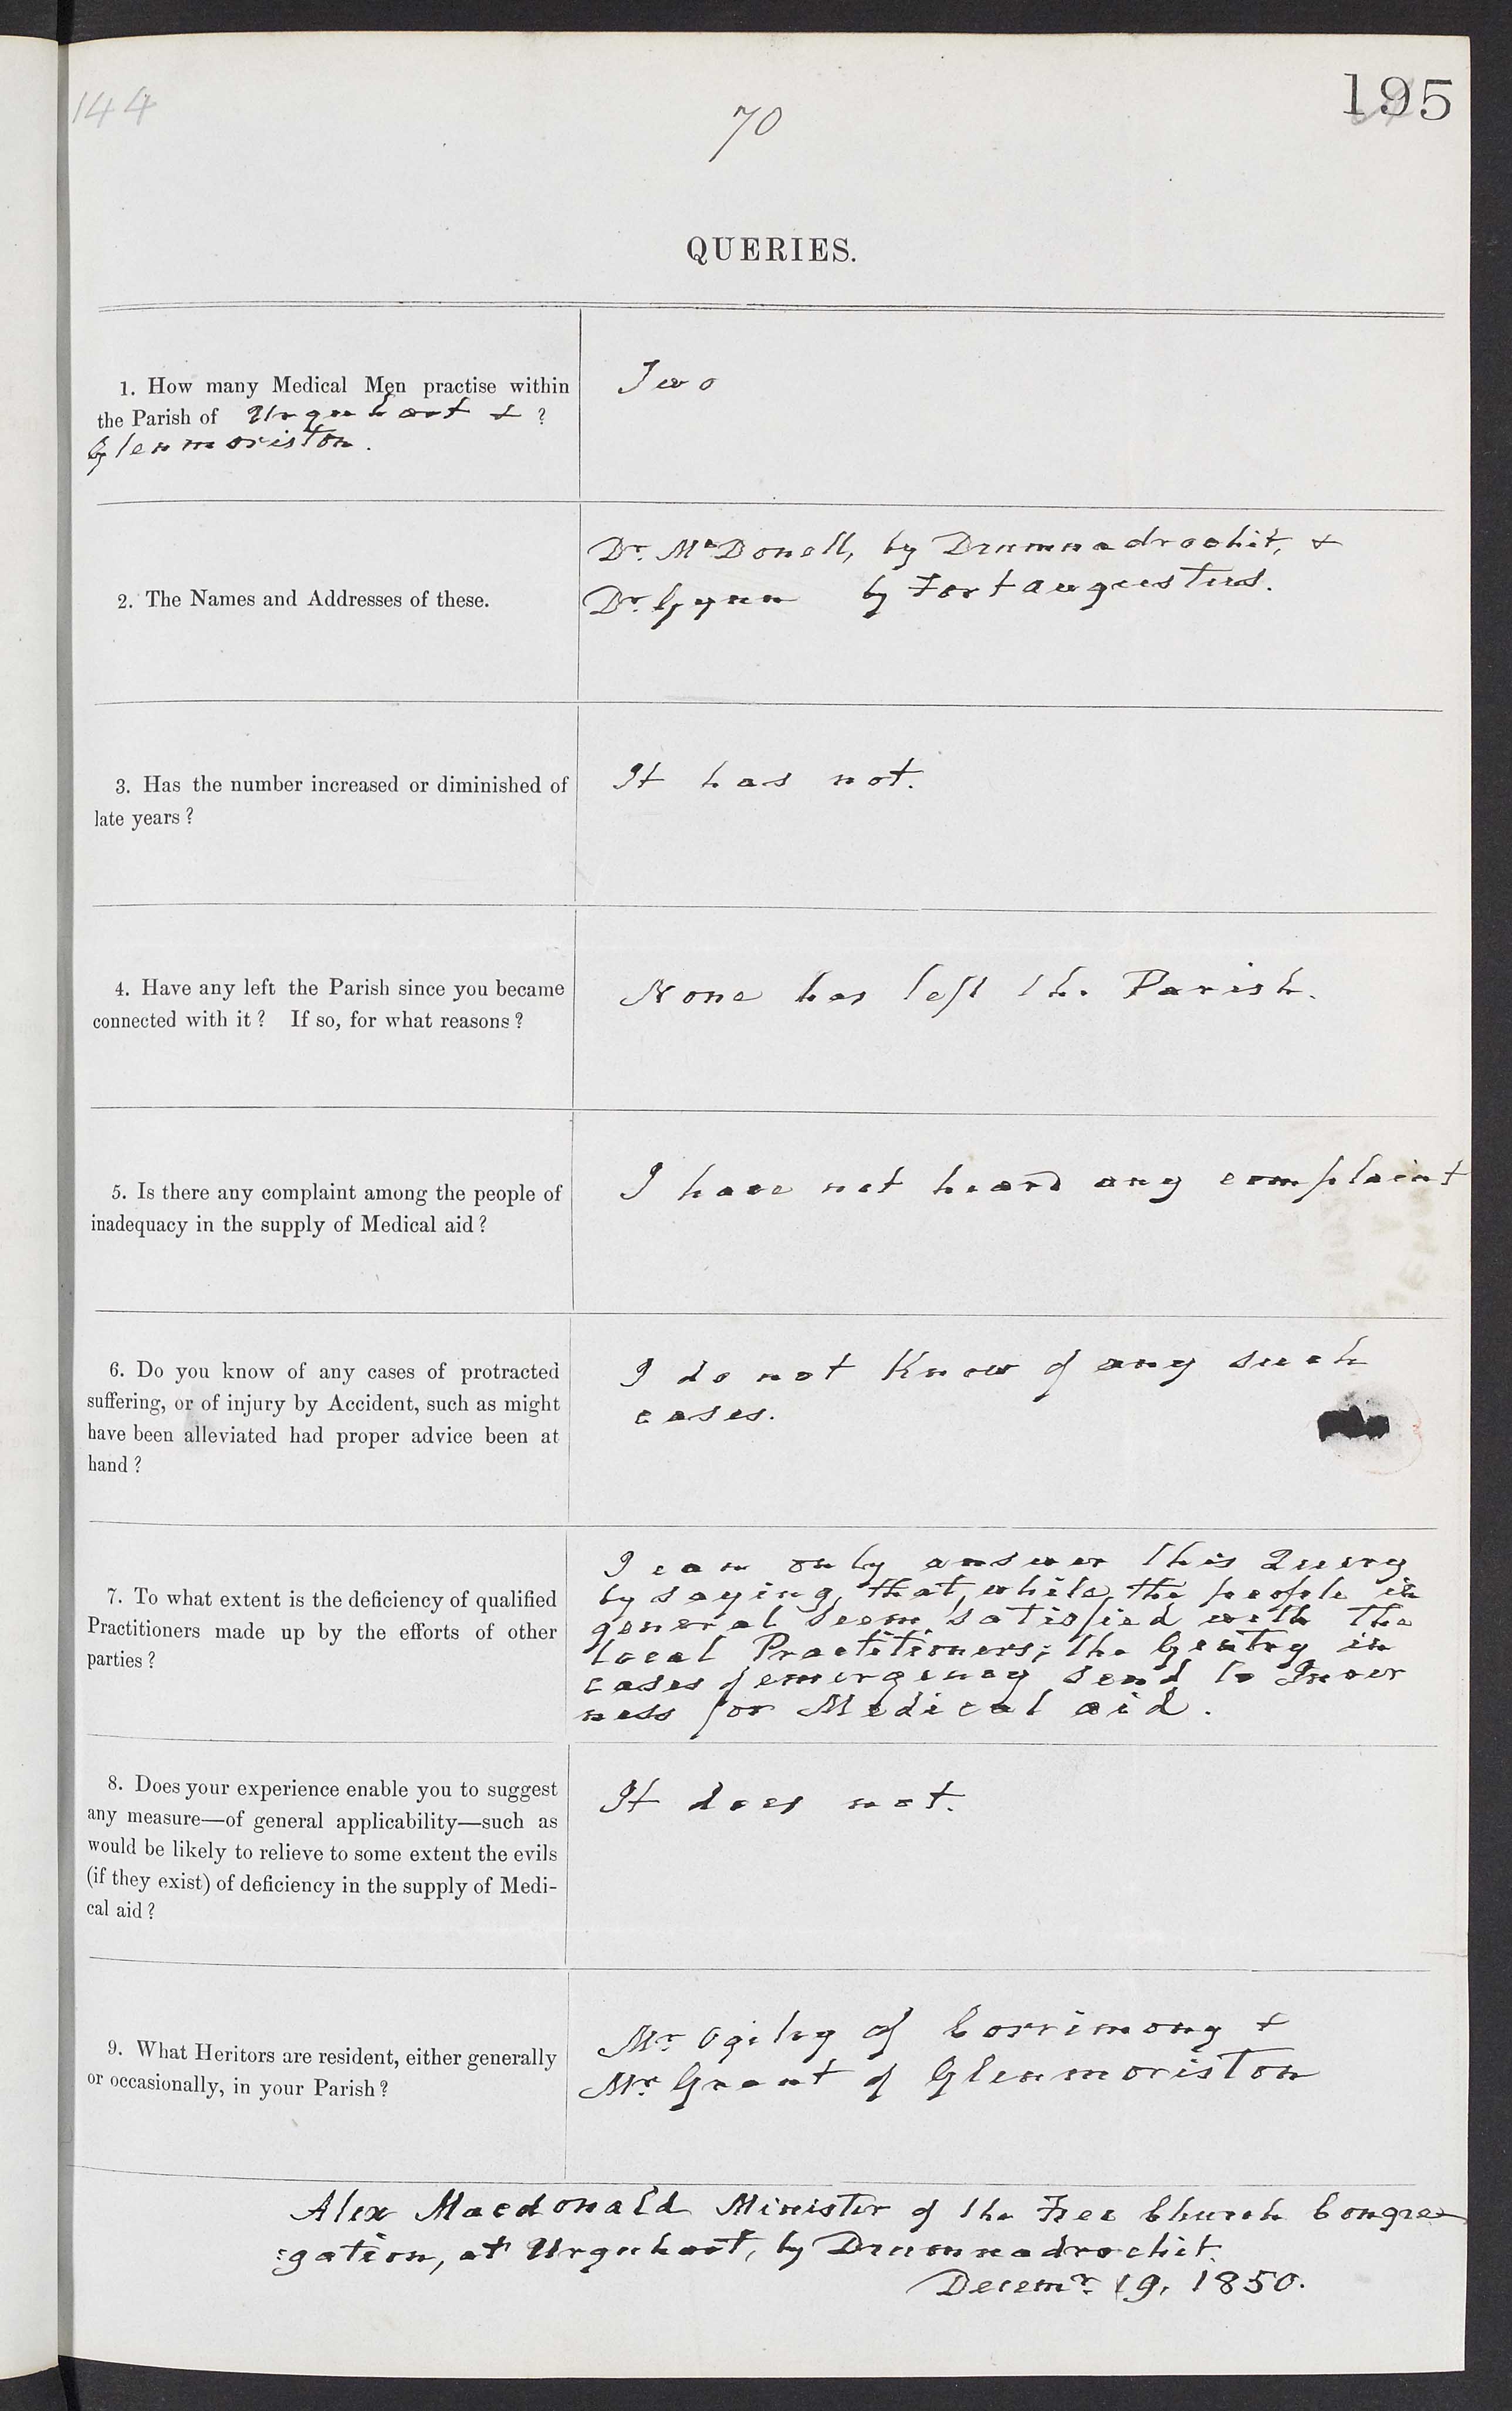 144
70
195
QUERIES.
1. How many Medical Men practise within
the Parish of Urquhart & ?
Glenmoriston.
Two
2. The Names and Addresses of these.
Dr. McDonell, by Drumnadrochit, &
Dr. Gynn by Fort augustus.
3. Has the number increased or diminished of
late years ?
It has not.
4. Have any left the Parish since you became
connected with it ? If so, for what reasons ?
None has left the Parish.
5. Is there any complaint among the people of
inadequacy in the supply of Medical aid ?
I have not heard any complaint
6. Do you know of any cases of protracted
suffering, or of injury by Accident, such as might
have been alleviated had proper advice been at
hand ?
I do not Know of any such
cases.
7. To what extent is the deficiency of qualified
Practitioners made up by the efforts of other
parties ?
I can only answer this Query
by saying, that, while, the people in
general seem satisfied with the
local Practitioners; the Gentry in
cases of emergency send to Inver
ness for Medical aid.
8. Does your experience enable you to suggest
any measure—of general applicability—such as
would be likely to relieve to some extent the evils
(if they exist) of deficiency in the supply of Medi-
cal aid ?
It does not.
9. What Heritors are resident, either generally
or occasionally, in your Parish ?
Mr Ogilvy of Corrimony &
Mr Grant of Glenmoriston
Alex Macdonald Minister of the Free Church Congre-
:gation, at Urquhart, by Drumnadrochit.
Decemr. 19, 1850.